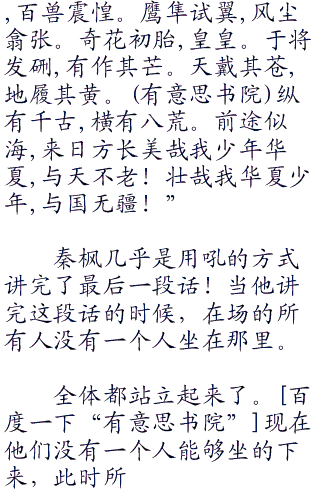 ,百兽震惶。鹰隼试翼,风尘
翕张。奇花初胎,皇皇。于将
发硎,有作其芒。天戴其苍,
地履其黄。(有意思书院)纵
有千古,横有八荒。前途似
海,来日方长美哉我少年华
夏,与天不老!壮哉我华夏少
年,与国无疆!”
秦枫几乎是用吼的方式
讲完了最后一段话!当他讲
完这段话的时候，在场的所
有人没有一个人坐在那里。
全体都站立起来了。[百
度一下“有意思书院”]现在
他们没有一个人能够坐的下
来，此时所